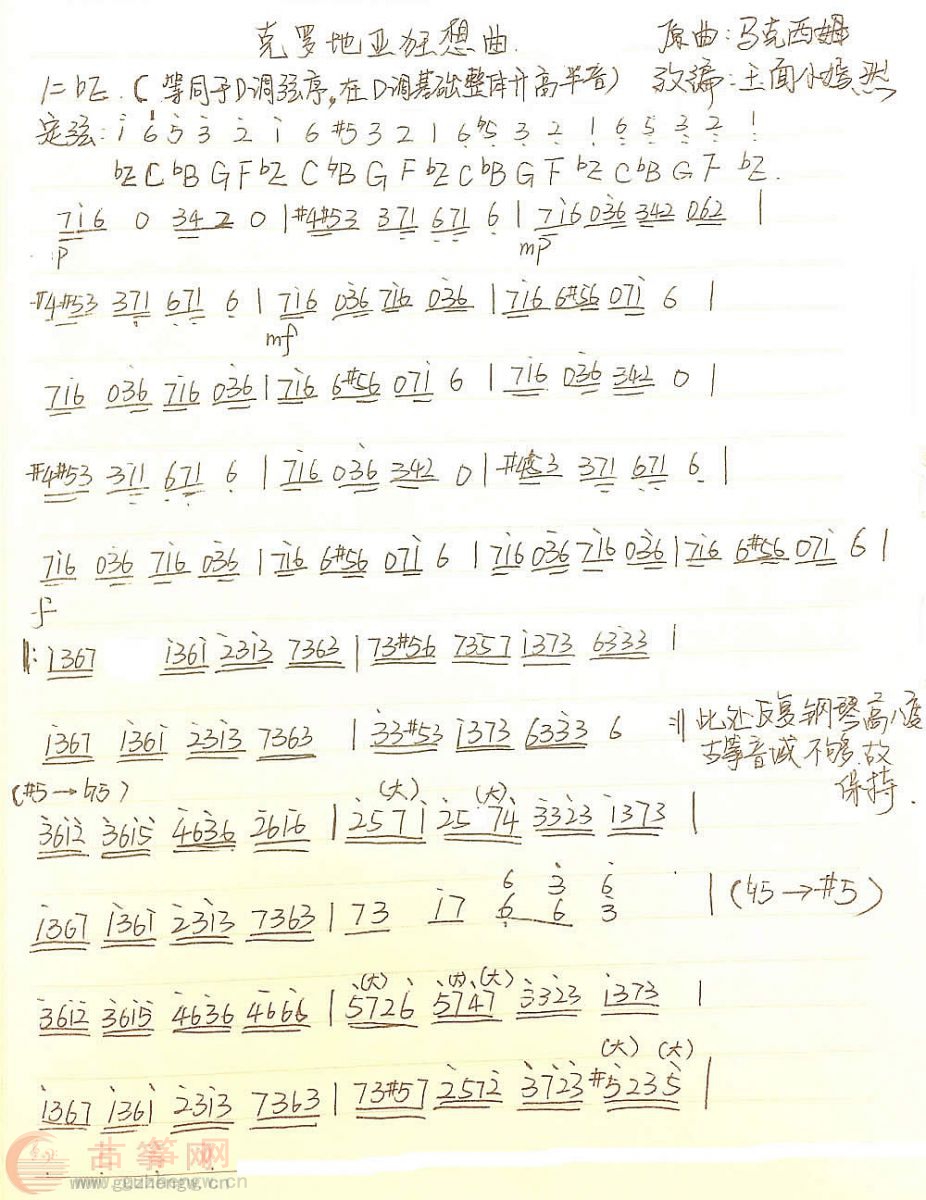 克罗地亚狂想曲. 原曲:马克西姆
1=bE. (等同于D调弦序,在D调基础整体升高半音) 改编:玉面小嫣然
定弦: i 6 5 3 2 i 6 #5 3 2 1 6 5 3 2 1 6 5 3 2 1
bE C bB G F bE C ♮B G F bE C bB G F bE C bB G F bE.
7i6 0 342 0 | #4#53 371 671 6 | 7i6 036 342 062 |
p mp
#4#53 371 671 6 | 7i6 036 7i6 036 | 7i6 6#56 07i 6 |
mf
7i6 036 7i6 036 | 7i6 6#56 07i 6 | 7i6 036 342 0 |
#4#53 371 671 6 | 7i6 036 342 0 | 371 671 6 |
7i6 036 7i6 036 | 7i6 6#56 07i 6 | 7i6 036 7i6 036 | 7i6 6#56 07i 6 |
f
‖: i367 i36i 23i3 7363 | 73#56 7357 i373 6333 |
i367 i36i 23i3 7363 | 33#53 i373 6333 6 :‖ 此处反复钢琴高八度
古筝音域不够.故
保持.
(#5→♮5) (大) (大)
36i2 36i5 4636 26i6 | 257i 2574 3323 i373 |
6 3 6
i367 i36i 23i3 7363 | 73 i7 6 6 3 | (♮5→#5)
(大) (大) (大)
36i2 36i5 4636 4666 | 5726 5747 3323 i373 |
(大) (大)
i367 i36i 23i3 7363 | 73#57 2572 3723 #5235 |
古筝网
www.guzhengw.cn